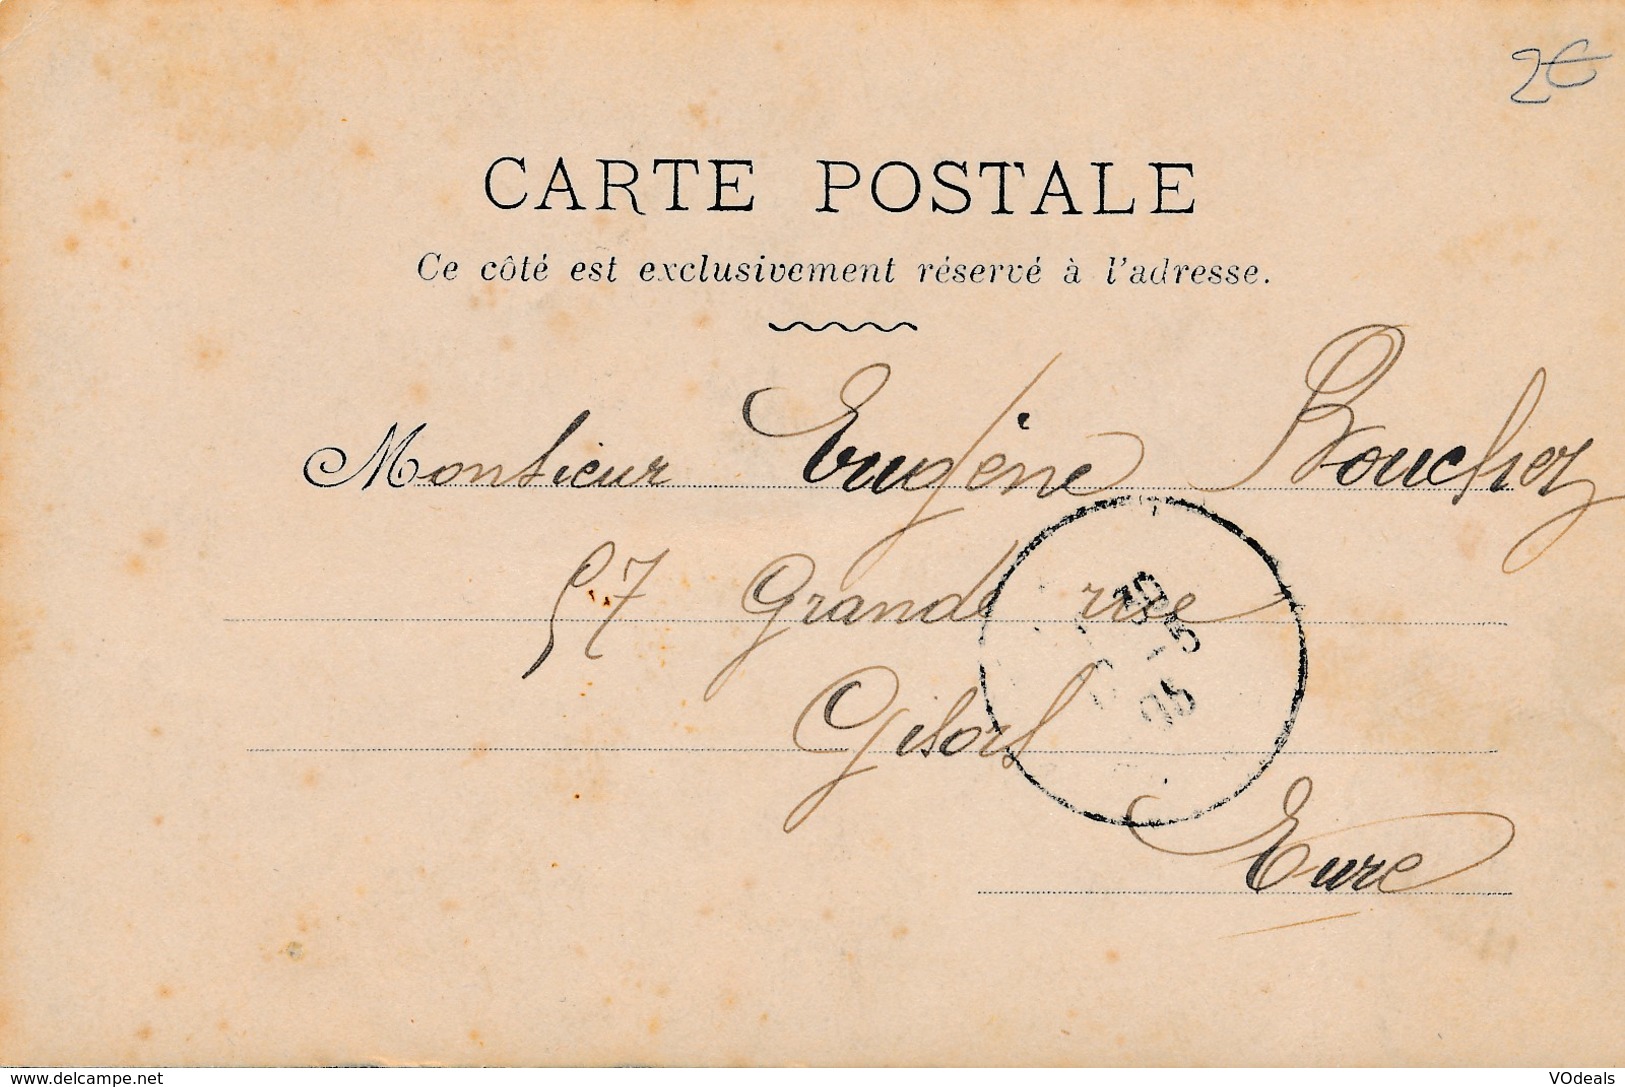 2€
CARTE POSTALE
Ce côté est exclusivement réservé à l'adresse.
Monsieur Eugène Bouchez
57 Grande rue
Gisors
Eure
www.delcampe.net
VOdeals